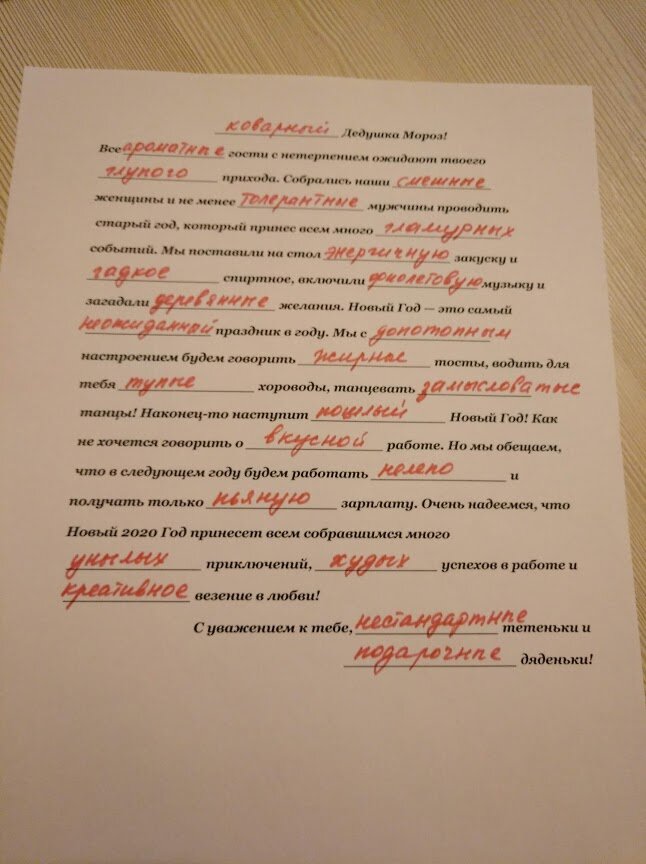 коварный Дедушка Мороз!
Все ароматные гости с нетерпением ожидают твоего
глупого прихода. Собрались наши смешные
женщины и не менее толерантные мужчины проводить
старый год, который принес всем много гламурных
событий. Мы поставили на стол энергичную закуску и
гадкое спиртное, включили фиолетовую музыку и
загадали деревянные желания. Новый Год — это самый
неожиданный праздник в году. Мы с допотопным
настроением будем говорить жирные тосты, водить для
тебя тупые хороводы, танцевать замысловатые
танцы! Наконец-то наступит пошлый Новый Год! Как
не хочется говорить о вкусной работе. Но мы обещаем,
что в следующем году будем работать нелепо и
получать только пьяную зарплату. Очень надеемся, что
Новый 2020 Год принесет всем собравшимся много
унылых приключений, худых успехов в работе и
креативное везение в любви!
С уважением к тебе, нестандартные тетеньки и
подарочные дяденьки!